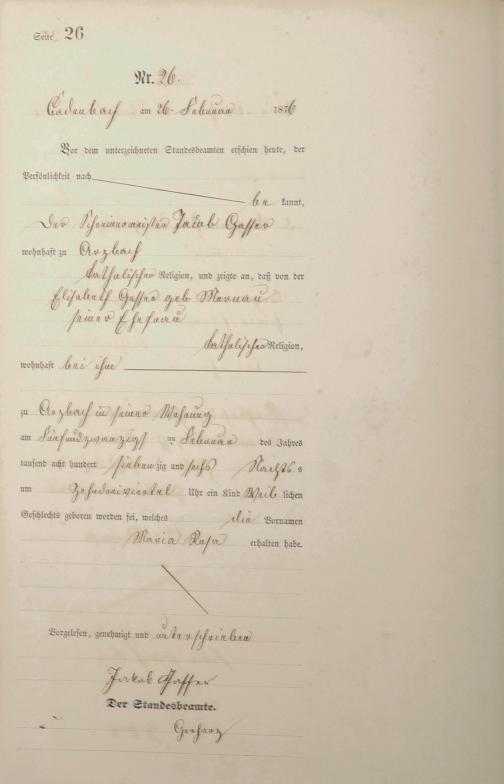 Seite 26
Nr. 26.
Cadenbach am 26. Februar 1876
Vor dem unterzeichneten Standesbeamten erschien heute, der
Persönlichkeit nach
be kannt,
der Schreinermeister Jacob Gasser
wohnhaft zu Arzbach
katholischer Religion, und zeigte an, daß von der
Elisabeth Gasser geb
seiner Ehefrau
katholischer Religion,
wohnhaft bei ihm
zu Arzbach in seiner Wohnung
am fünfundzwanzigst en Februar des Jahres
tausend acht hundert siebenzig und sechs Nachts s
um Zehndreiviertel Uhr ein Kind Weib lichen
Geschlechts geboren worden sei, welches die Vornamen
Maria Rosa erhalten habe.
Vorgelesen, genehmigt und unterschrieben
Jakob Gasser
Der Standesbeamte.
Gerharz